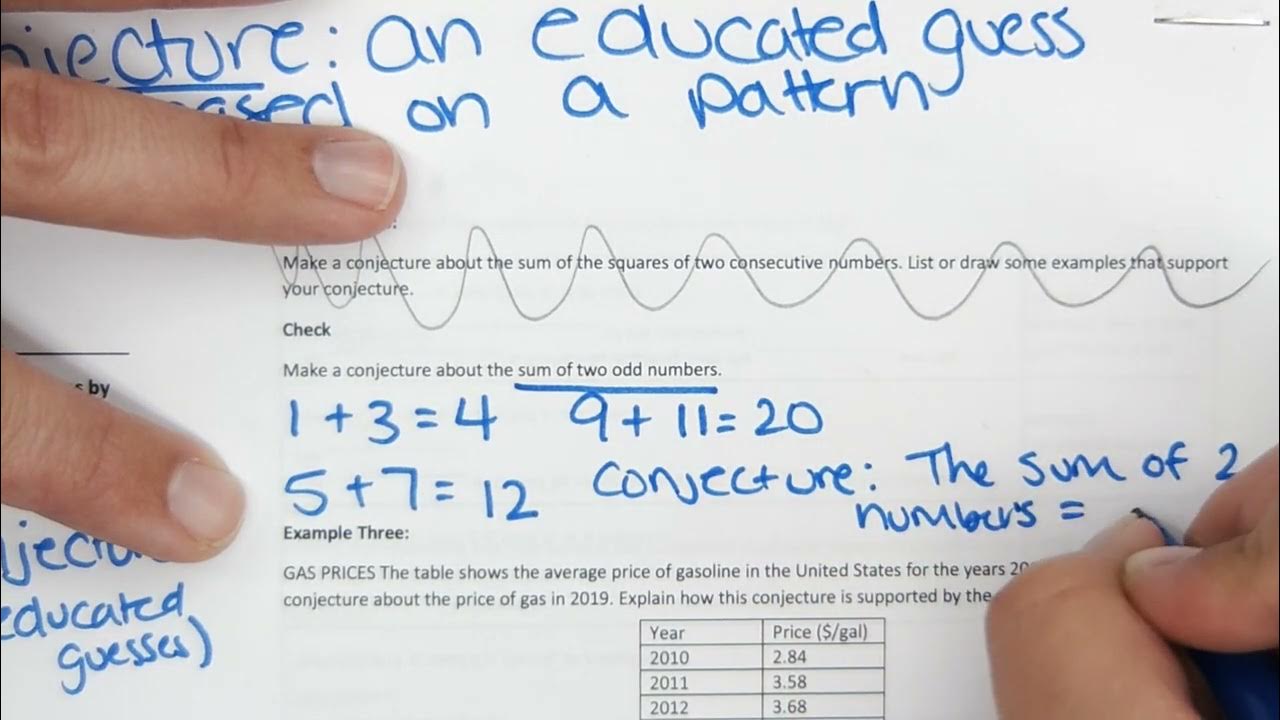 jecture: an educated guess
based on a pattern
Make a conjecture about the sum of the squares of two consecutive numbers. List or draw some examples that support
your conjecture.
Check
Make a conjecture about the sum of two odd numbers.
by
1 + 3 = 4 9 + 11 = 20
5 + 7 = 12 Conjecture: The sum of 2
numbers =
Example Three:
jectu
educated
guesses)
GAS PRICES The table shows the average price of gasoline in the United States for the years
conjecture about the price of gas in 2019. Explain how this conjecture is supported by the
Year Price ($/gal)
2010 2.84
2011 3.58
2012 3.68